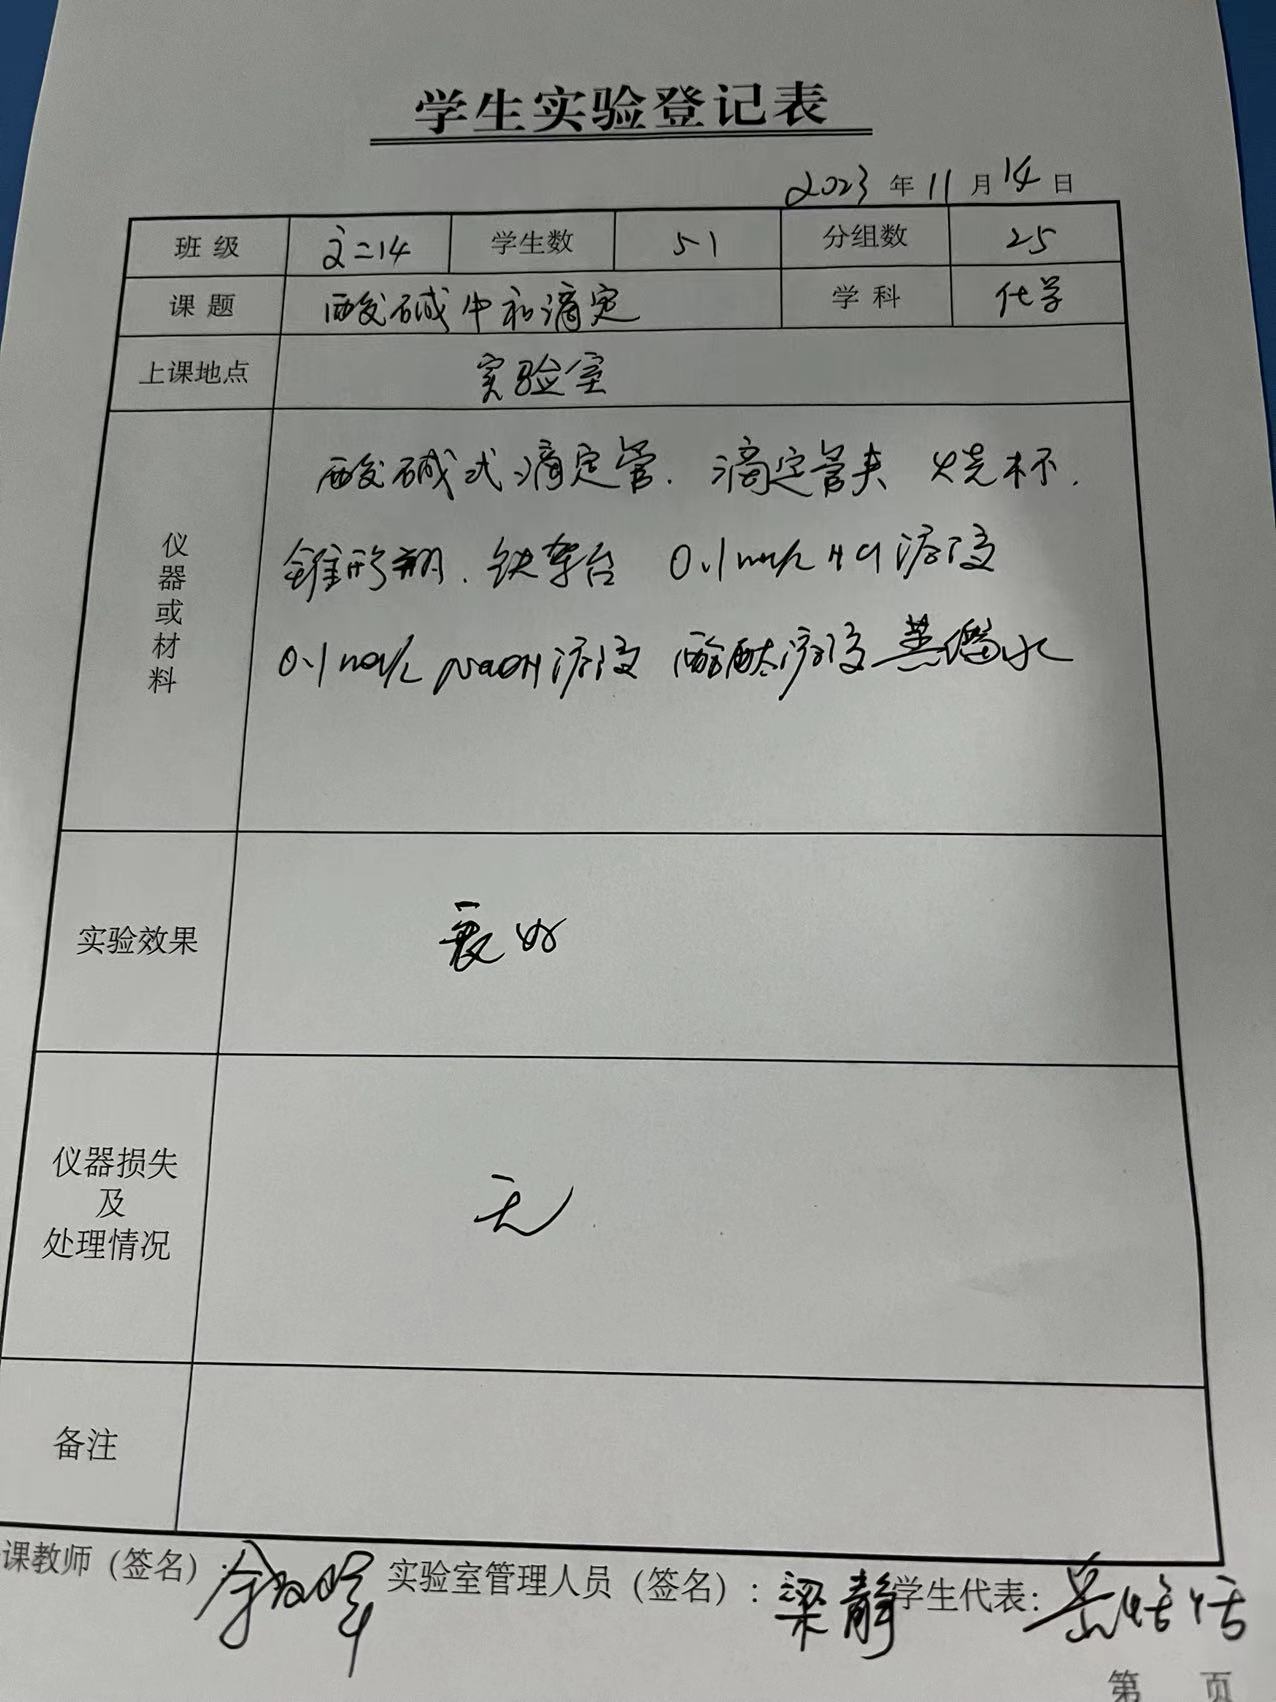 学生实验登记表
2023 年 11 月 14 日
班 级 高二14 学生数 51 分组数 25
课 题 酸碱中和滴定 学 科 化学
上课地点 实验室
仪器或材料
酸碱式滴定管. 滴定管夹 烧杯.
锥形瓶. 铁架台 0.1mol/L HCl 溶液
0.1mol/L NaOH溶液 酚酞溶液 蒸馏水
实验效果 良好
仪器损失
及
处理情况
无
备注
课教师（签名）: 实验室管理人员（签名）: 梁静 学生代表:
第 页